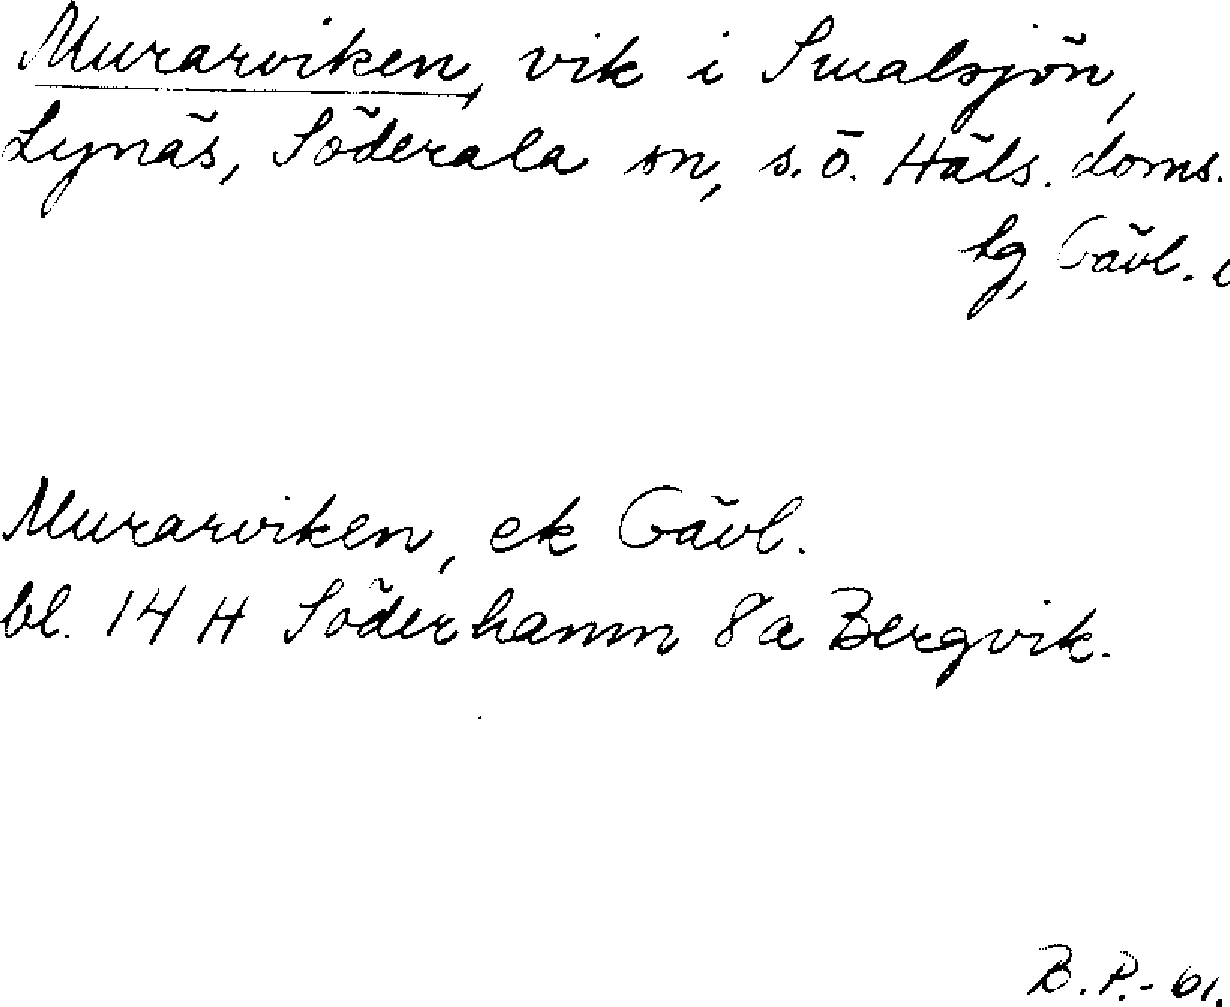 Murarviken, vik i Smalsjön,
Lynäs, Söderala sn, s.ö. Häls. doms.
lg, Gävl.
Murarviken, ek Gävl.
bl. 14 H Söderhamn 8a Bergvik.
B. P. - 61.